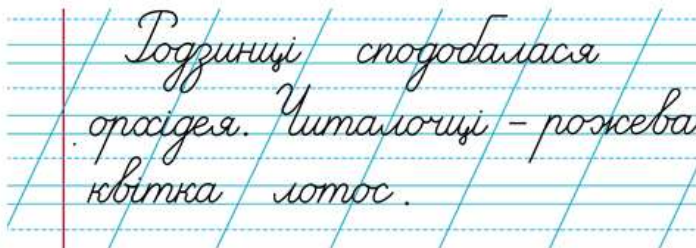 Родзинці сподобалася
орхідея. Читалочці - рожева
квітка лотос.